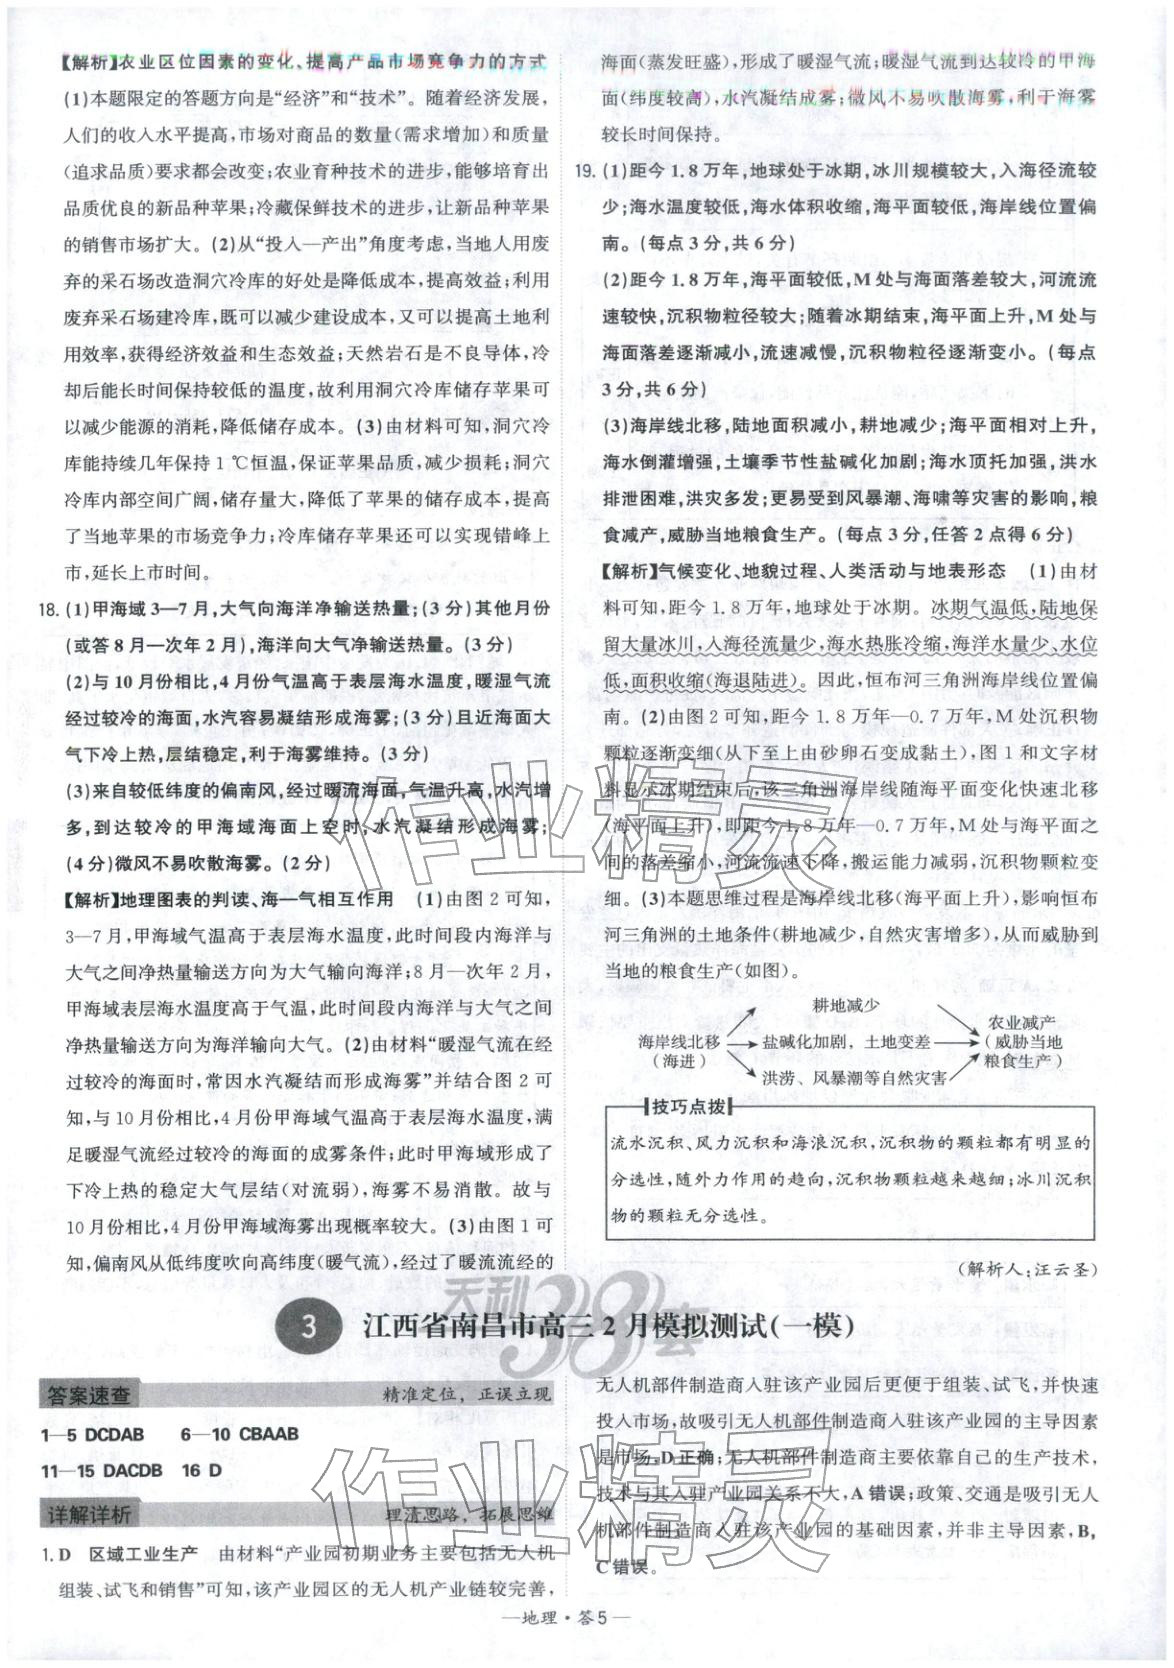 【解析】农业区位因素的变化、提高产品市场竞争力的方式
(1)本题限定的答题方向是“经济”和“技术”。随着经济发展,
人们的收入水平提高,市场对商品的数量(需求增加)和质量
(追求品质)要求都会改变;农业育种技术的进步,能够培育出
品质优良的新品种苹果;冷藏保鲜技术的进步,让新品种苹果
的销售市场扩大。(2)从“投入—产出”角度考虑,当地人用废
弃的采石场改造洞穴冷库的好处是降低成本,提高效益;利用
废弃采石场建冷库,既可以减少建设成本,又可以提高土地利
用效率,获得经济效益和生态效益;天然岩石是不良导体,冷
却后能长时间保持较低的温度,故利用洞穴冷库储存苹果可
以减少能源的消耗,降低储存成本。(3)由材料可知,洞穴冷
库能持续几年保持1℃恒温,保证苹果品质,减少损耗;洞穴
冷库内部空间广阔,储存量大,降低了苹果的储存成本,提高
了当地苹果的市场竞争力;冷库储存苹果还可以实现错峰上
市,延长上市时间。
18.(1)甲海域3—7月,大气向海洋净输送热量;(3分)其他月份
(或答8月—次年2月),海洋向大气净输送热量。(3分)
(2)与10月份相比,4月份气温高于表层海水温度,暖湿气流
经过较冷的海面,水汽容易凝结形成海雾;(3分)且近海面大
气下冷上热,层结稳定,利于海雾维持。(3分)
(3)来自较低纬度的偏南风,经过暖流海面,气温升高,水汽增
多,到达较冷的甲海域海面上空时,水汽凝结形成海雾;
(4分)微风不易吹散海雾。(2分)
【解析】地理图表的判读、海—气相互作用 (1)由图2可知,
3—7月,甲海域气温高于表层海水温度,此时间段内海洋与
大气之间净热量输送方向为大气输向海洋;8月—次年2月,
甲海域表层海水温度高于气温,此时间段内海洋与大气之间
净热量输送方向为海洋输向大气。(2)由材料“暖湿气流在经
过较冷的海面时,常因水汽凝结而形成海雾”并结合图2可
知,与10月份相比,4月份甲海域气温高于表层海水温度,满
足暖湿气流经过较冷的海面的成雾条件;此时甲海域形成了
下冷上热的稳定大气层结(对流弱),海雾不易消散。故与
10月份相比,4月份甲海域海雾出现概率较大。(3)由图1可
知,偏南风从低纬度吹向高纬度(暖气流),经过了暖流流经的
海面(蒸发旺盛),形成了暖湿气流;暖湿气流到达较冷的甲海
面(纬度较高),水汽凝结成雾;微风不易吹散海雾,利于海雾
较长时间保持。
19.(1)距今1.8万年,地球处于冰期,冰川规模较大,入海径流较
少;海水温度较低,海水体积收缩,海平面较低,海岸线位置偏
南。(每点3分,共6分)
(2)距今1.8万年,海平面较低,M处与海面落差较大,河流流
速较快,沉积物粒径较大;随着冰期结束,海平面上升,M处与
海面落差逐渐减小,流速减慢,沉积物粒径逐渐变小。(每点
3分,共6分)
(3)海岸线北移,陆地面积减小,耕地减少;海平面相对上升,
海水倒灌增强,土壤季节性盐碱化加剧;海水顶托加强,洪水
排泄困难,洪灾多发;更易受到风暴潮、海啸等灾害的影响,粮
食减产,威胁当地粮食生产。(每点3分,任答2点得6分)
【解析】气候变化、地貌过程、人类活动与地表形态 (1)由材
料可知,距今1.8万年,地球处于冰期。冰期气温低,陆地保
留大量冰川,入海径流量少,海水热胀冷缩,海洋水量少、水位
低,面积收缩(海退陆进)。因此,恒布河三角洲海岸线位置偏
南。(2)由图2可知,距今1.8万年—0.7万年,M处沉积物
颗粒逐渐变细(从下至上由砂卵石变成黏土),图1和文字材
料显示冰期结束后,该三角洲海岸线随海平面变化快速北移
(海平面上升),即距今1.8万年—0.7万年,M处与海平面之
间的落差缩小,河流流速下降,搬运能力减弱,沉积物颗粒变
细。(3)本题思维过程是海岸线北移(海平面上升),影响恒布
河三角洲的土地条件(耕地减少,自然灾害增多),从而威胁到
当地的粮食生产(如图)。
耕地减少
海岸线北移
(海进)
盐碱化加剧,土地变差
农业减产
(威胁当地
粮食生产)
洪涝、风暴潮等自然灾害
技巧点拨
流水沉积、风力沉积和海浪沉积,沉积物的颗粒都有明显的
分选性,随外力作用的趋向,沉积物颗粒越来越细;冰川沉积
物的颗粒无分选性。
(解析人:汪云圣)
3 江西省南昌市高三2月模拟测试(一模)
天利38套
答案速查 精准定位,正误立现
1—5 DCDAB 6—10 CBAAB
11—15 DACDB 16 D
详解详析 理清思路,拓展思维
1. D 区域工业生产 由材料“产业园初期业务主要包括无人机
组装、试飞和销售”可知,该产业园区的无人机产业链较完善,
无人机部件制造商入驻该产业园后更便于组装、试飞,并快速
投入市场,故吸引无人机部件制造商入驻该产业园的主导因素
是市场,D正确;无人机部件制造商主要依靠自己的生产技术,
技术与其入驻产业园关系不大,A错误;政策、交通是吸引无人
机部件制造商入驻该产业园的基础因素,并非主导因素,B、
C错误。
—地理·答5—
作业精灵
作业精灵